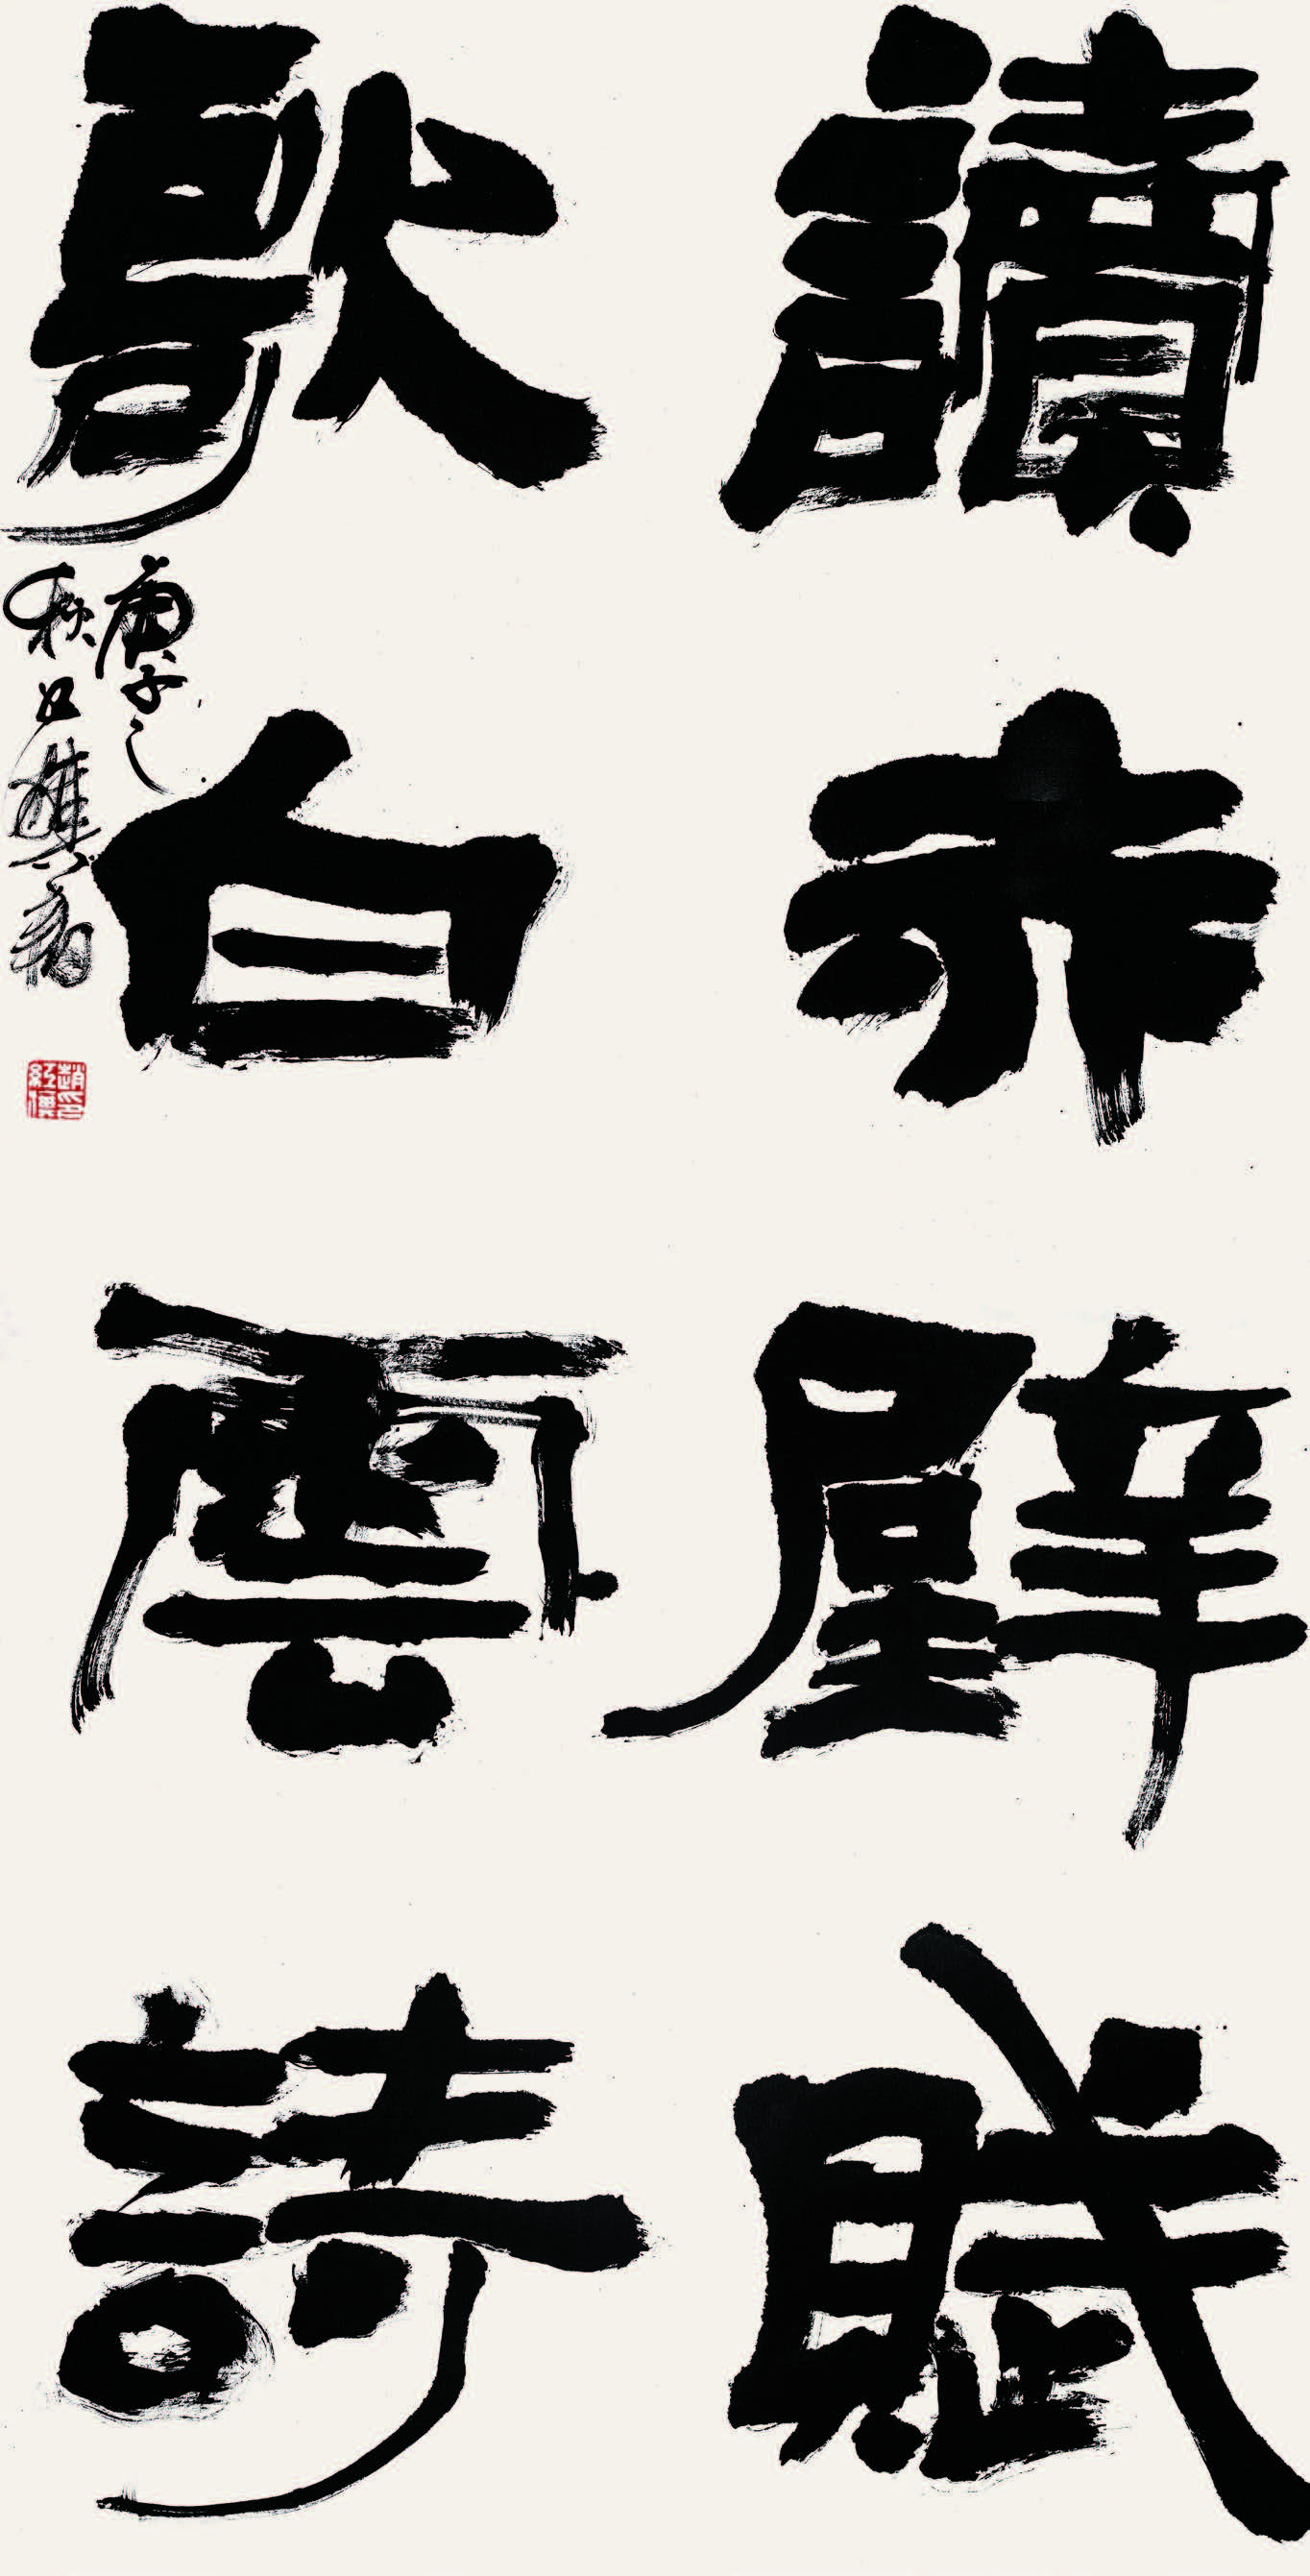 讀赤壁賦
歌白雲詩
庚子之
秋
趙印
紅